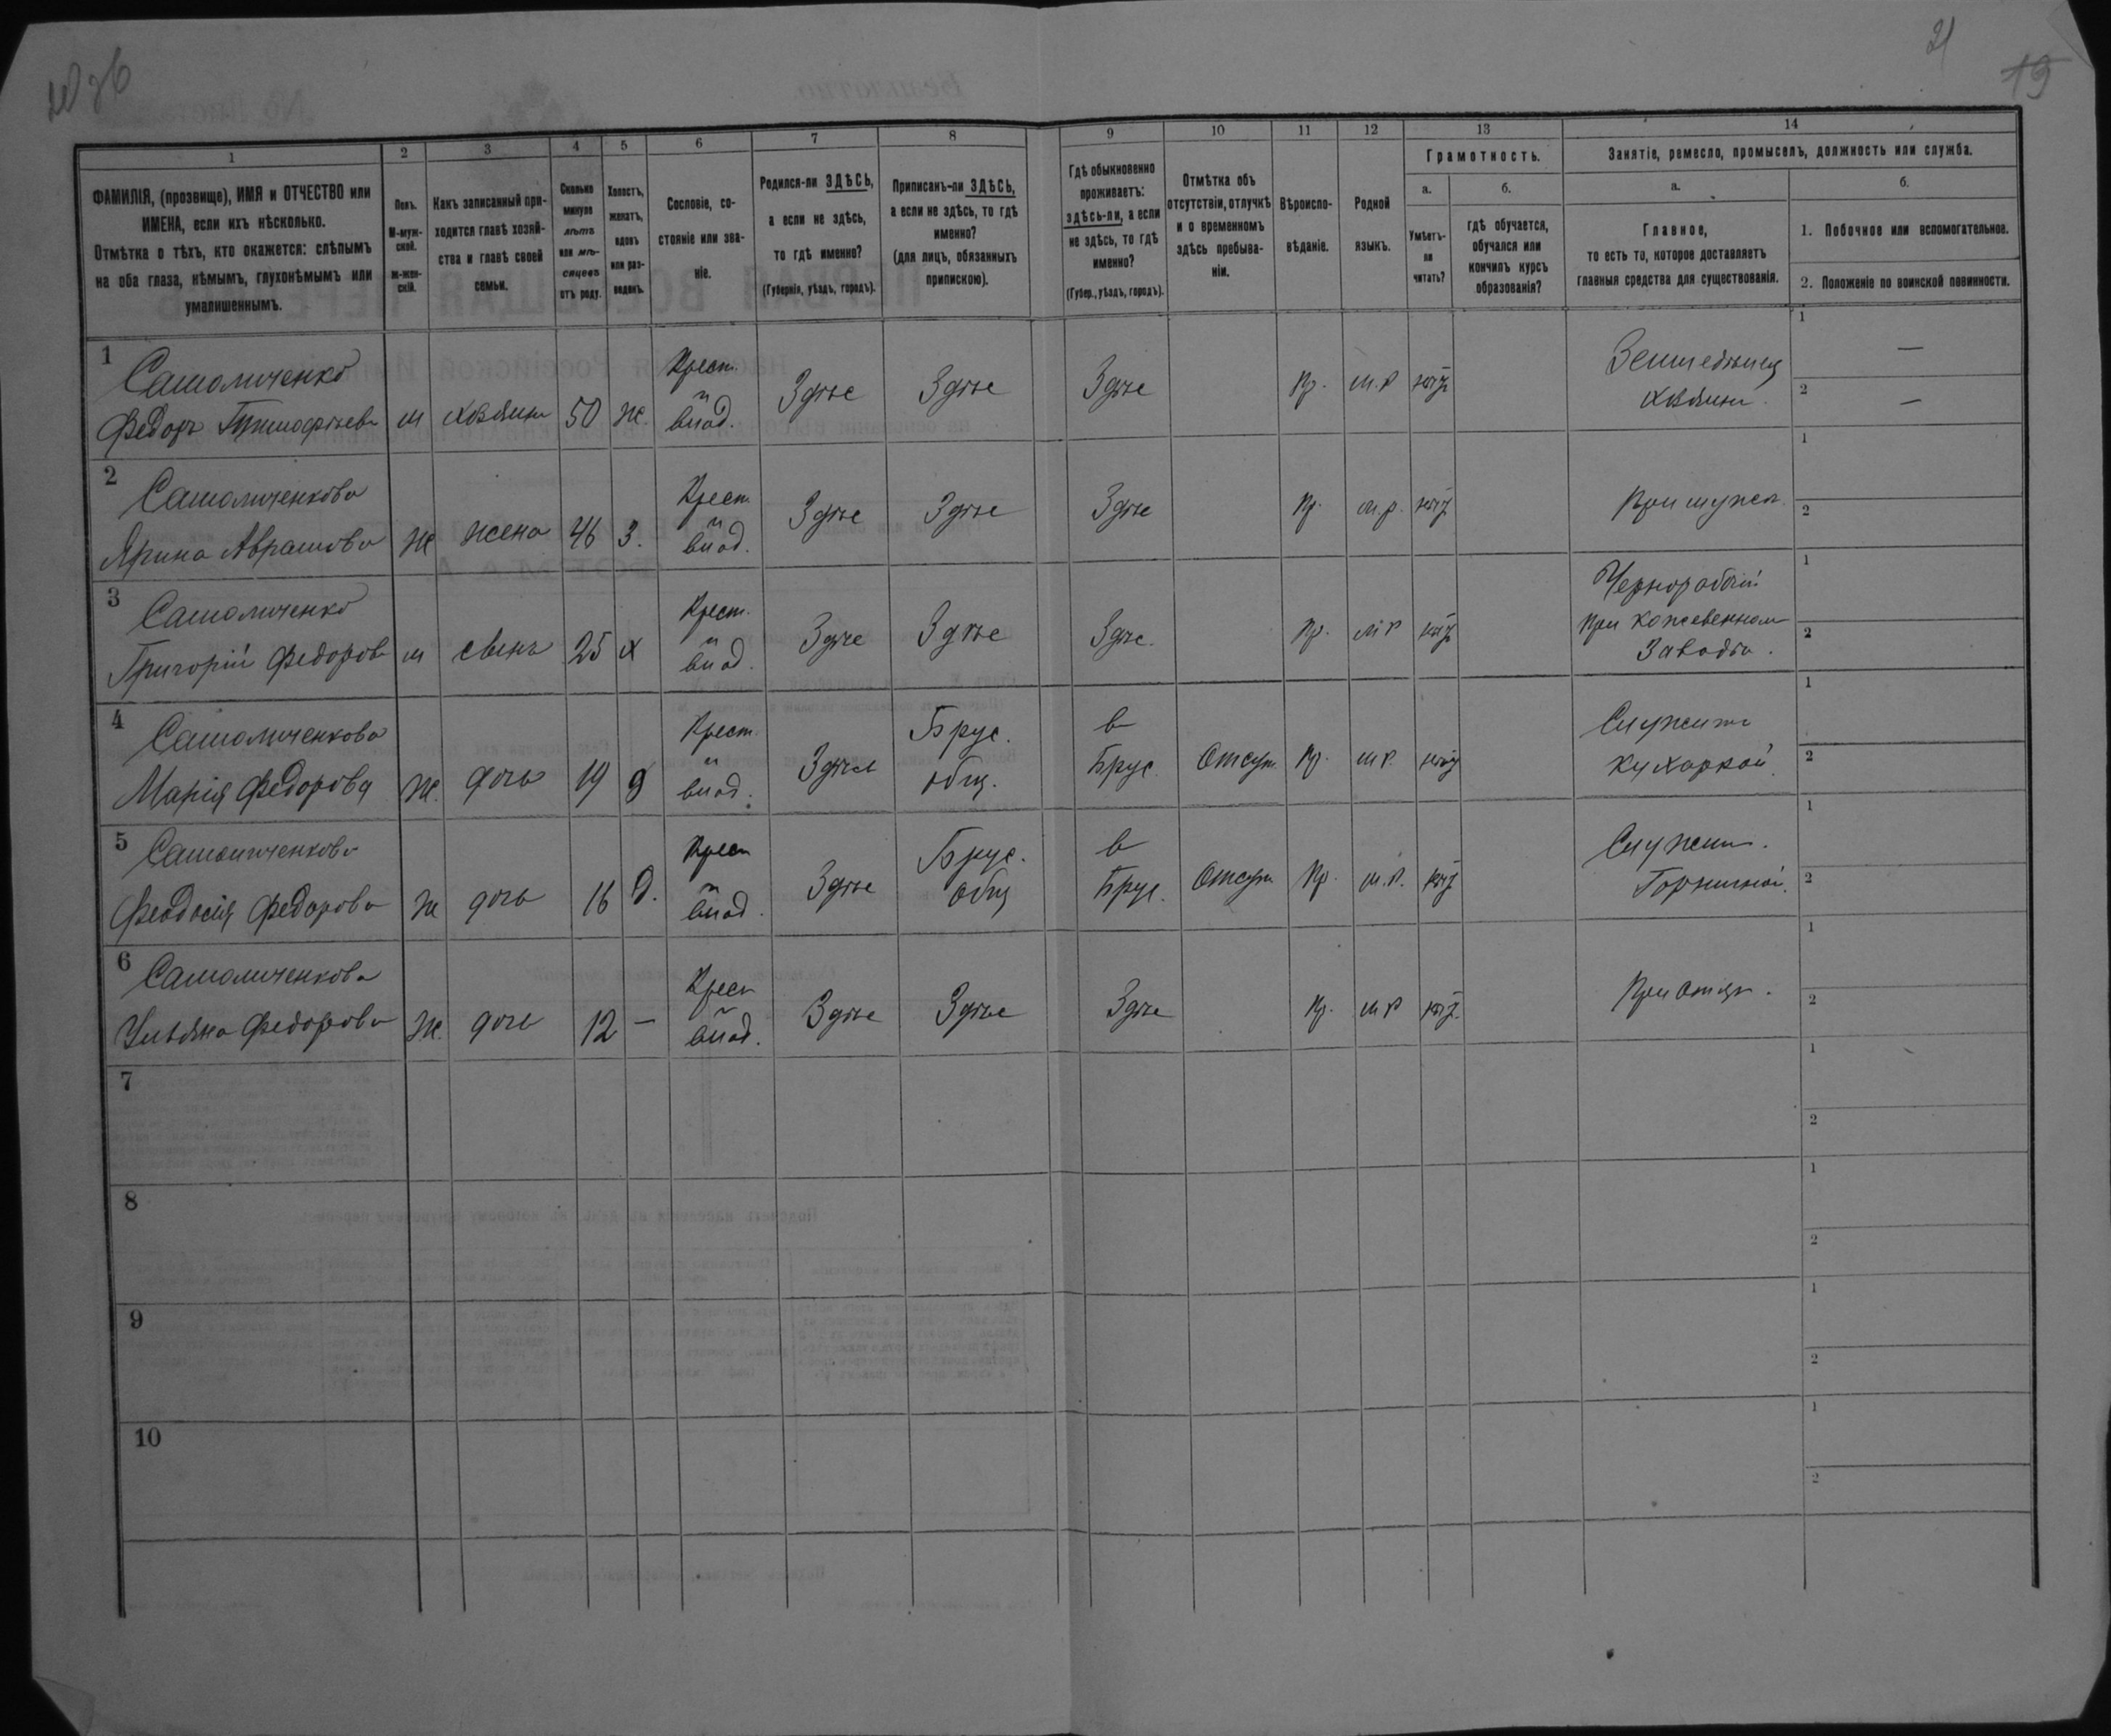 21
19
1 2 3 4 5 6 7 8 9 10 11 12 13 14
ФАМИЛІЯ, (прозвище), ИМЯ и ОТЧЕСТВО или
ИМЕНА, если ихъ нѣсколько.
Отмѣтка о тѣхъ, кто окажется: слѣпымъ
на оба глаза, нѣмымъ, глухонѣмымъ или
умалишеннымъ.
Полъ.
М-муж-
ской.
Ж-жен-
скій.
Какъ записанный при-
ходится главѣ хозяй-
ства и главѣ своей
семьи.
Сколько
минуло
лѣтъ
или мѣ-
сяцевъ
отъ роду.
Холостъ,
женатъ,
вдовъ
или раз-
веденъ.
Сословіе, со-
стояніе или зва-
ніе.
Родился-ли ЗДѢСЬ,
а если не здѣсь,
то гдѣ именно?
(Губернія, уѣздъ, городъ).
Приписанъ-ли ЗДѢСЬ,
а если не здѣсь, то гдѣ
именно?
(для лицъ, обязанныхъ
припискою).
Гдѣ обыкновенно
проживаетъ:
здѣсь-ли, а если
не здѣсь, то гдѣ
именно?
(Губер., уѣздъ, городъ).
Отмѣтка объ
отсутствіи, отлучкѣ
и о временномъ
здѣсь пребыва-
ніи.
Вѣроиспо-
вѣданіе.
Родной
языкъ.
Грамотность.
а.
Умѣетъ-
ли
читать?
б.
гдѣ обучается,
обучался или
кончилъ курсъ
образованія?
Занятіе, ремесло, промыселъ, должность или служба.
а.
Главное,
то есть то, которое доставляетъ
главныя средства для существованія.
б.
1. Побочное или вспомогательное.
2. Положеніе по воинской повинности.
1
Самойличенко
Федоръ Тимофѣевъ
м хозяинъ 50 ж.
Крест.
и
влад.
Здѣсе Здѣсе Здѣсе Пр. м.р нѣтъ
Земледѣлец
хозяинъ.
1 —
2 —
2
Самойличенкова
Ярина Аврамова
ж жена 46 з.
Крест.
и
влад.
Здѣсе Здѣсе Здѣсе Пр. м.р. нѣтъ
При мужѣ.
1
2
3
Самойличенко
Григорій Федоровъ
м сынъ 25 х
Крест.
и
влад.
Здѣсе Здѣсе Здѣсе. Пр. м р нѣтъ
Чернорабочій
при кожевенном
заводѣ.
1
2
4
Самойличенкова
Марія Федорова
ж. дочь 19 д
Крест.
и
влад.
Здѣсь
Брус.
общ.
в
Брус.
Отсут. Пр. м р. нѣтъ
Служитъ
кухаркой.
1
2
5
Самойличенкова
Феодосія Федорова
ж дочь 16 д.
Крест
и
влад.
Здѣсе
Брус.
общ
в
Брус.
Отсут Пр. м.р. нѣтъ
Служит.
Горничной.
1
2
6
Самойличенкова
Ульяна Федорова
ж. дочь 12 —
Крест
и
влад.
Здѣсе Здѣсе Здѣсе Пр. м р нѣтъ.
При отцѣ.
1
2
7
1
2
8
1
2
9
1
2
10
1
2